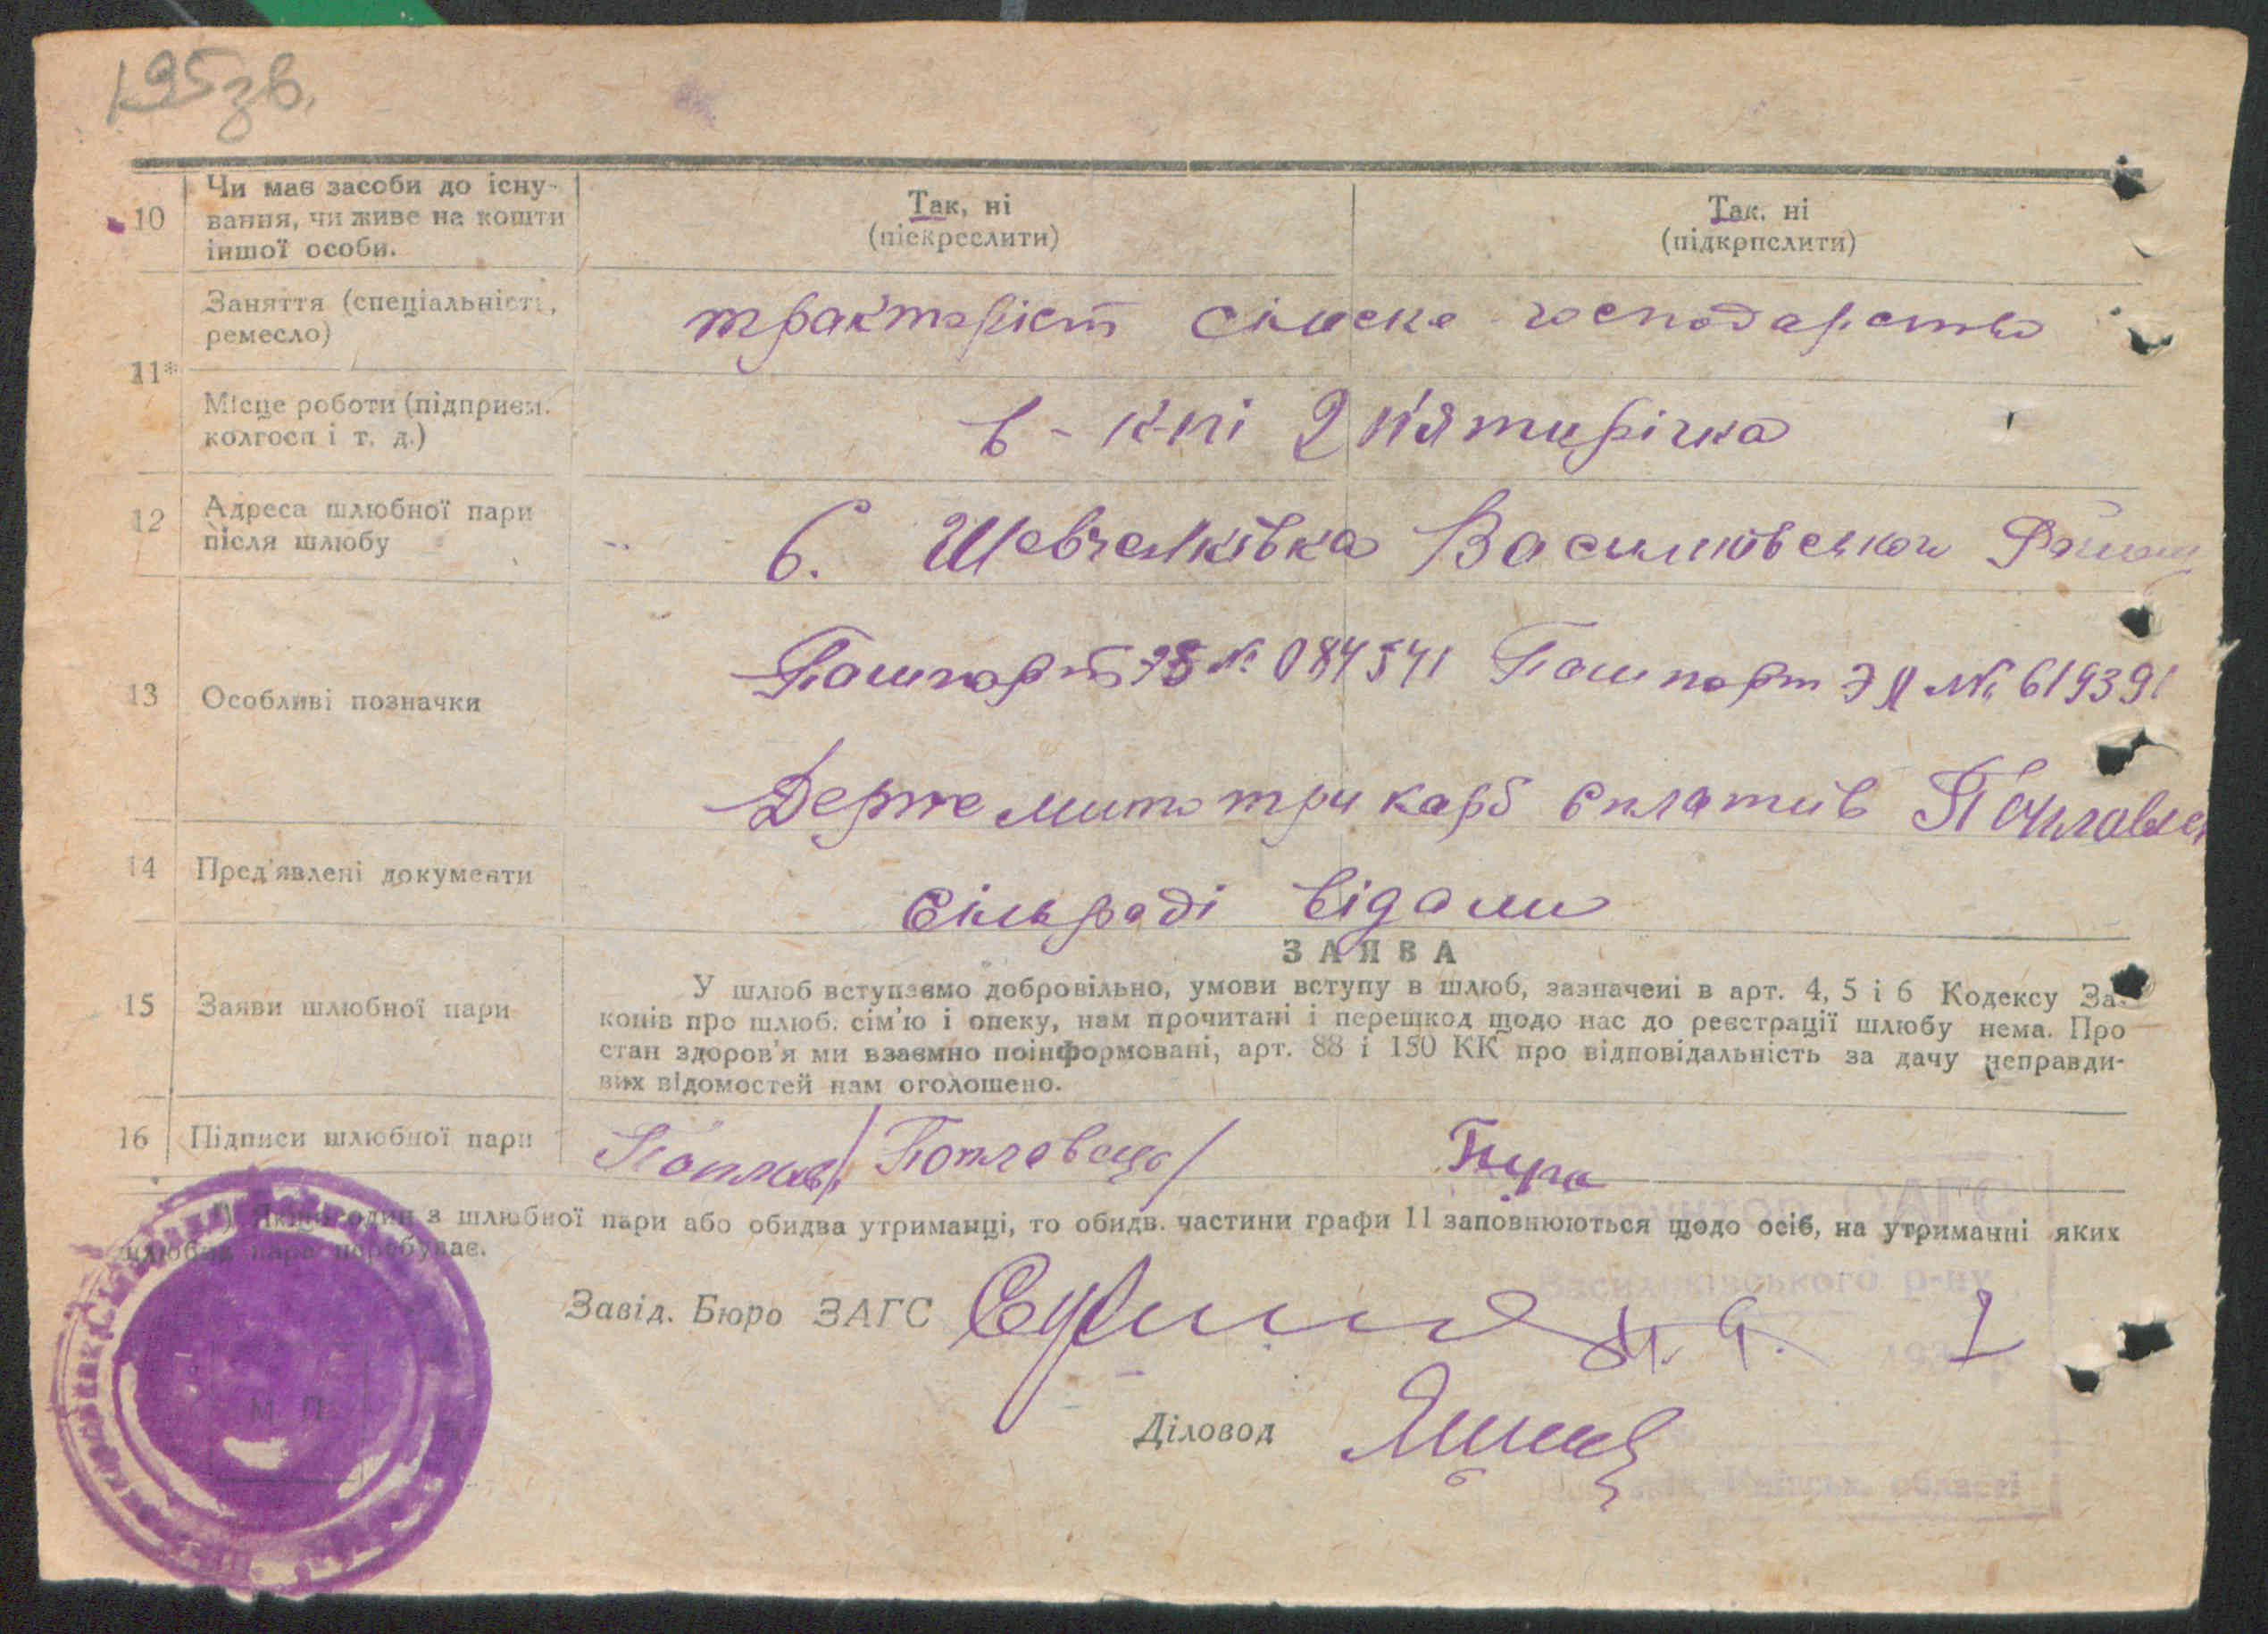 195 зв.
10 Чи має засоби до існу-
вання, чи живе на кошти
іншої особи.
Так, ні
(піскреслити)
Так. ні
(підкрпслити)
11*
Заняття (спеціальність,
ремесло)
тракторіст сільске господарство
Місце роботи (підприєм.
колгосп і т. д.)
в-кпі 2 п'ятирічка
12 Адреса шлюбної пари
після шлюбу
с. Шевченківка Васильківськог Району
13 Особливі позначки
Пашпорт № 084541 Пашпорт ЭЯ № 619391
Держмито три карб сплатив
14 Пред'явлені документи
Сільраді
15 Заяви шлюбної пари
ЗАЯВА
У шлюб вступаємо добровільно, умови вступу в шлюб, зазначені в арт. 4, 5 і 6 Кодексу За-
конів про шлюб, сім'ю і опеку, нам прочитані і перешкод щодо нас до реєстрації шлюбу нема. Про
стан здоров'я ми взаємно поінформовані, арт. 88 і 150 КК про відповідальність за дачу неправди-
вих відомостей нам оголошено.
16 Підписи шлюбної пари
*) Якщо один з шлюбної пари або обидва утриманці, то обидв. частини графи 11 заповнюються щодо осіб, на утриманні яких
шлюбна пара перебуває.
Завід. Бюро ЗАГС
Діловод
М. П.